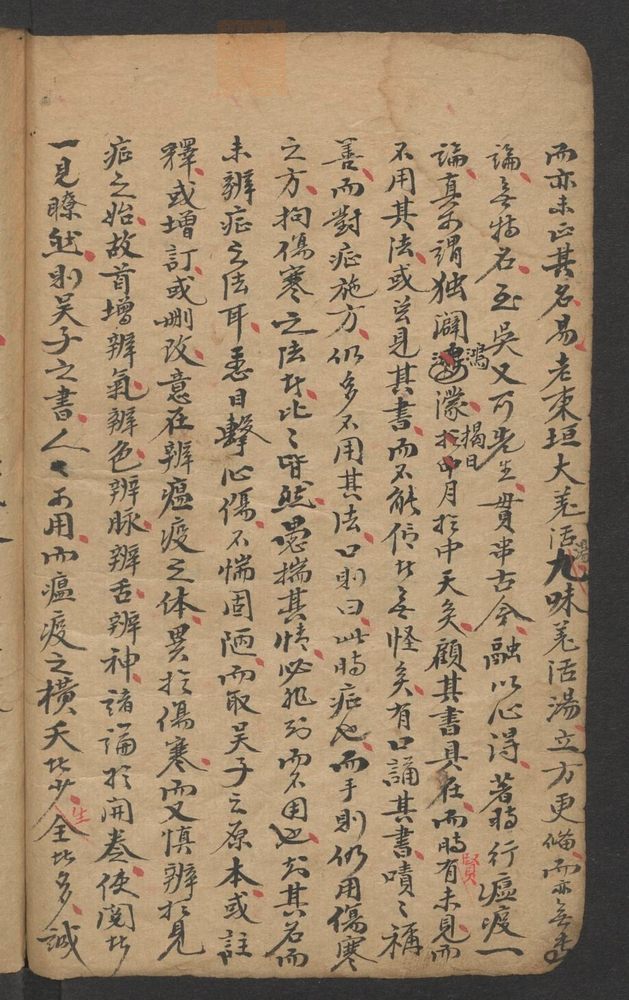 而亦未正其名易老東垣大羌活湯九味羌活湯立方更備而亦無專
論無特名至吳又可先生貫串古今融以心得著時行瘟疫一
論真可謂独闢鴻濛揭日月於中天矣顧其書具在而時賢有未見而
不用其法或虽見其書而不能信者無怪矣有口誦其書嘖〻稱
善而對症施方仍多不用其法口則曰此時症也而手則仍用傷寒
之方拘傷寒之法者比〻皆然愚揣其情必非知而不用也知其名而
未辨症之法耳愚目擊心傷不惴固陋而取吴子之原本或註
釋或增訂或刪改意在辨瘟疫之体異於傷寒而又慎辨於見
症之始故首增辨氣辨色辨脉辨舌辨神諸論於開卷使閱者
一見瞭然則吴子之書人〻可用而瘟疫之橫夭者少生全者多誠